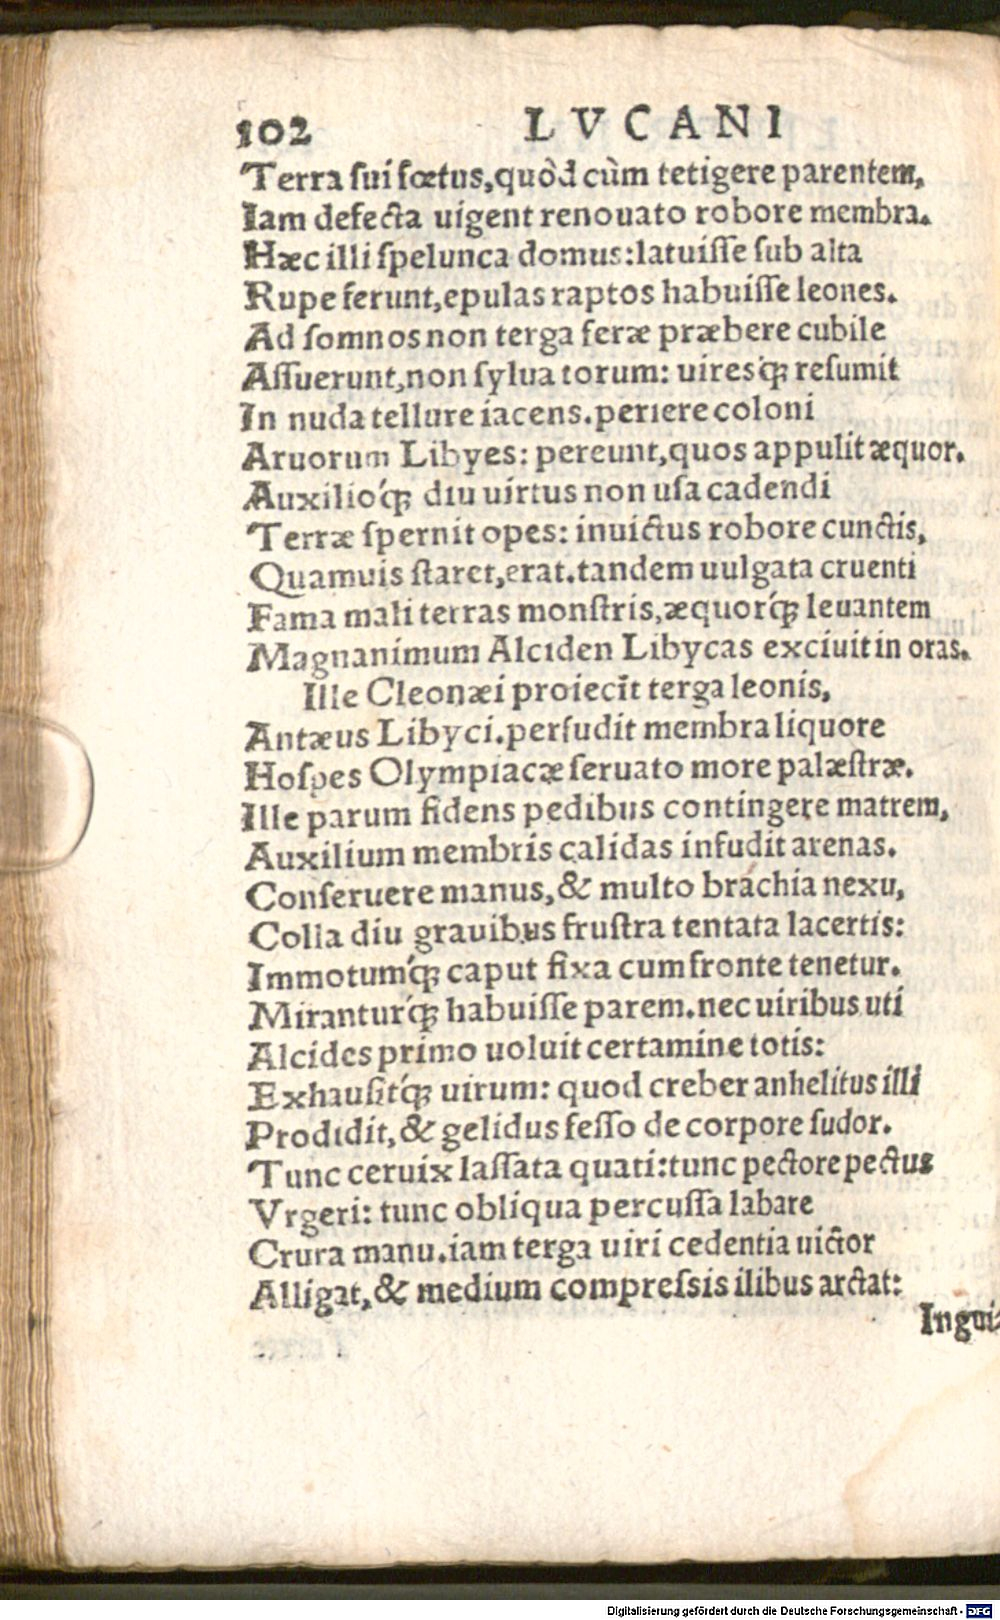 102 LVCANI
Terra sui fœtus, quòd cùm tetigere parentem,
Iam defecta uigent renouato robore membra.
Hæc illi spelunca domus: latuisse sub alta
Rupe ferunt, epulas raptos habuisse leones.
Ad somnos non terga feræ præbere cubile
Assuerunt, non sylua torum: uiresq́ꝫ resumit
In nuda tellure iacens. periere coloni
Aruorum Libyes: pereunt, quos appulit æquor.
Auxilioq́ꝫ diu uirtus non usa cadendi
Terræ spernit opes: inuictus robore cunctis,
Quamuis staret, erat. tandem uulgata cruenti
Fama mali terras monstris, æquorq́ꝫ leuantem
Magnanimum Alciden Libycas exciuit in oras.
Ille Cleonæi proiecit terga leonis,
Antæus Libyci. perfudit membra liquore
Hospes Olympiacæ seruato more palæstræ.
Ille parum fidens pedibus contingere matrem,
Auxilium membris calidas infudit arenas.
Conseruere manus, & multo brachia nexu,
Colla diu grauibus frustra tentata lacertis:
Immotumq́ꝫ caput fixa cum fronte tenetur.
Miranturq́ꝫ habuisse parem. nec uiribus uti
Alcides primo uoluit certamine totis:
Exhausitq́ꝫ uirum: quod creber anhelitus illi
Prodidit, & gelidus fesso de corpore sudor.
Tunc ceruix lassata quati: tunc pectore pectus
Vrgeri: tunc obliqua percussa labare
Crura manu. iam terga uiri cedentia uictor
Alligat, & medium compressis ilibus arctat:
Ingui-
Digitalisierung gefördert durch die Deutsche Forschungsgemeinschaft - DFG